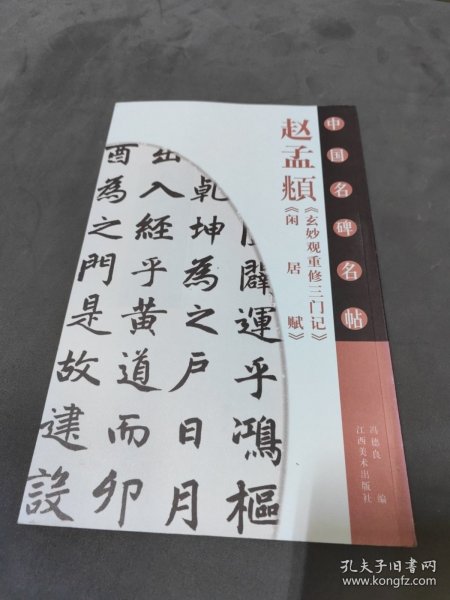 中国名碑名帖
赵孟頫
《玄妙观重修三门记》
《闲居赋》
冯德良 编
江西美术出版社
闢運乎鴻樞
乾坤為之戶日月
出入經乎黄道而卯
酉為之門是故建設
孔夫子旧书网
www.kongfz.com